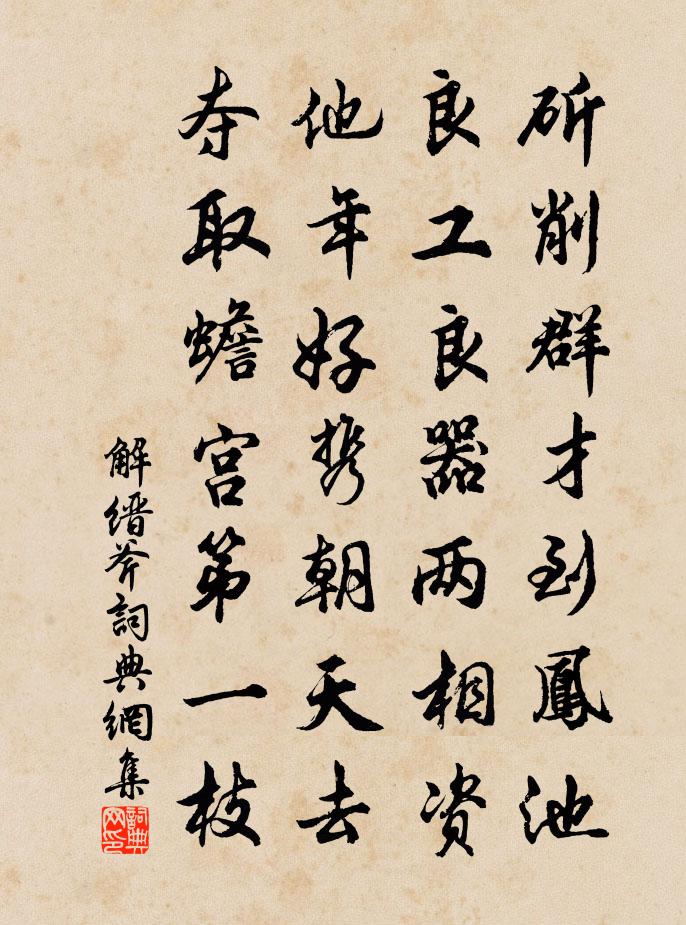 斫削群才到鳳池
良工良器两相资
他年好携朝天去
夺取蟾宫第一枝
解缙斧詞典網集
詞典网印